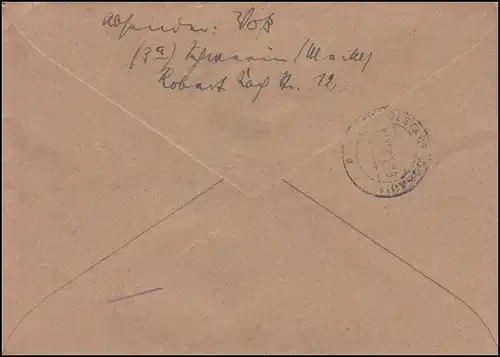 Absender: Voß
(3a) Schwerin (Meckl)
Robert Koch Str. 12.